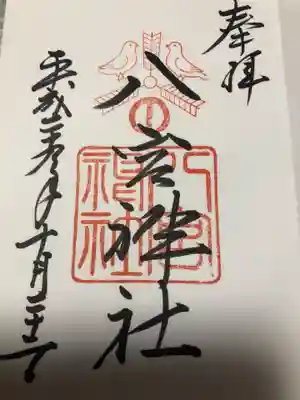 奉拝
八宮神社
八宮神社
平成二十九年十月二十一日